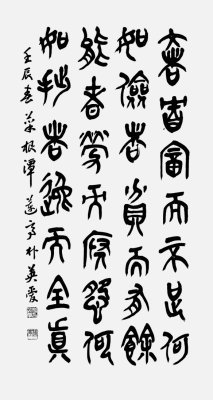 奢者富而不足何
如儉者貧而有餘
能者勞而府怨何
如拙者逸而全眞
壬辰春菜根潭蓮亭朴英愛